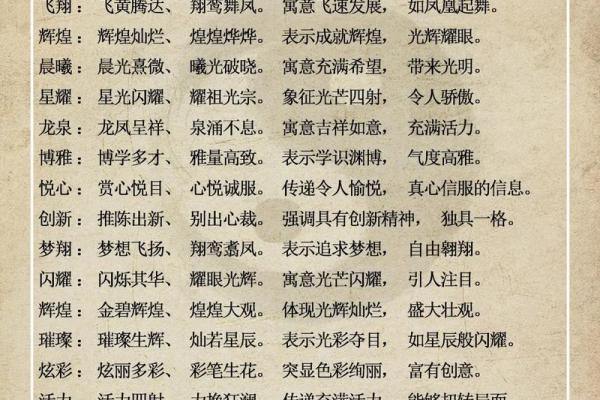 飞翔：飞黄腾达、翔鸾舞凤。寓意飞速发展，如凤凰起舞。
辉煌：辉煌灿烂、煌煌烨烨。表示成就辉煌，光辉耀眼。
晨曦：晨光熹微、曦光破晓。寓意充满希望，带来光明。
星耀：星光闪耀、耀祖光宗。象征光芒四射，令人骄傲。
龙泉：龙凤呈祥、泉涌不息。寓意吉祥如意，充满活力。
博雅：博学多才、雅量高致。表示学识渊博，气度高雅。
悦心：赏心悦目、心悦诚服。传递令人愉悦，真心信服的信息。
创新：推陈出新、别出心裁。强调具有创新精神，独具一格。
梦翔：梦想飞扬、翔鸾翥凤。表示追求梦想，自由翱翔。
闪耀：闪烁其华、耀眼光辉。寓意光芒闪耀，引人注目。
辉煌：金碧辉煌、煌煌大观。体现光辉灿烂，盛大壮观。
璀璨：璀璨生辉、灿若星辰。表示光彩夺目，如星辰般闪耀。
炫彩：炫丽多彩、彩笔生花。突显色彩绚丽，富有创意。
活力：活力四射、力挽狂澜。传递充满活力，能够扭转局面